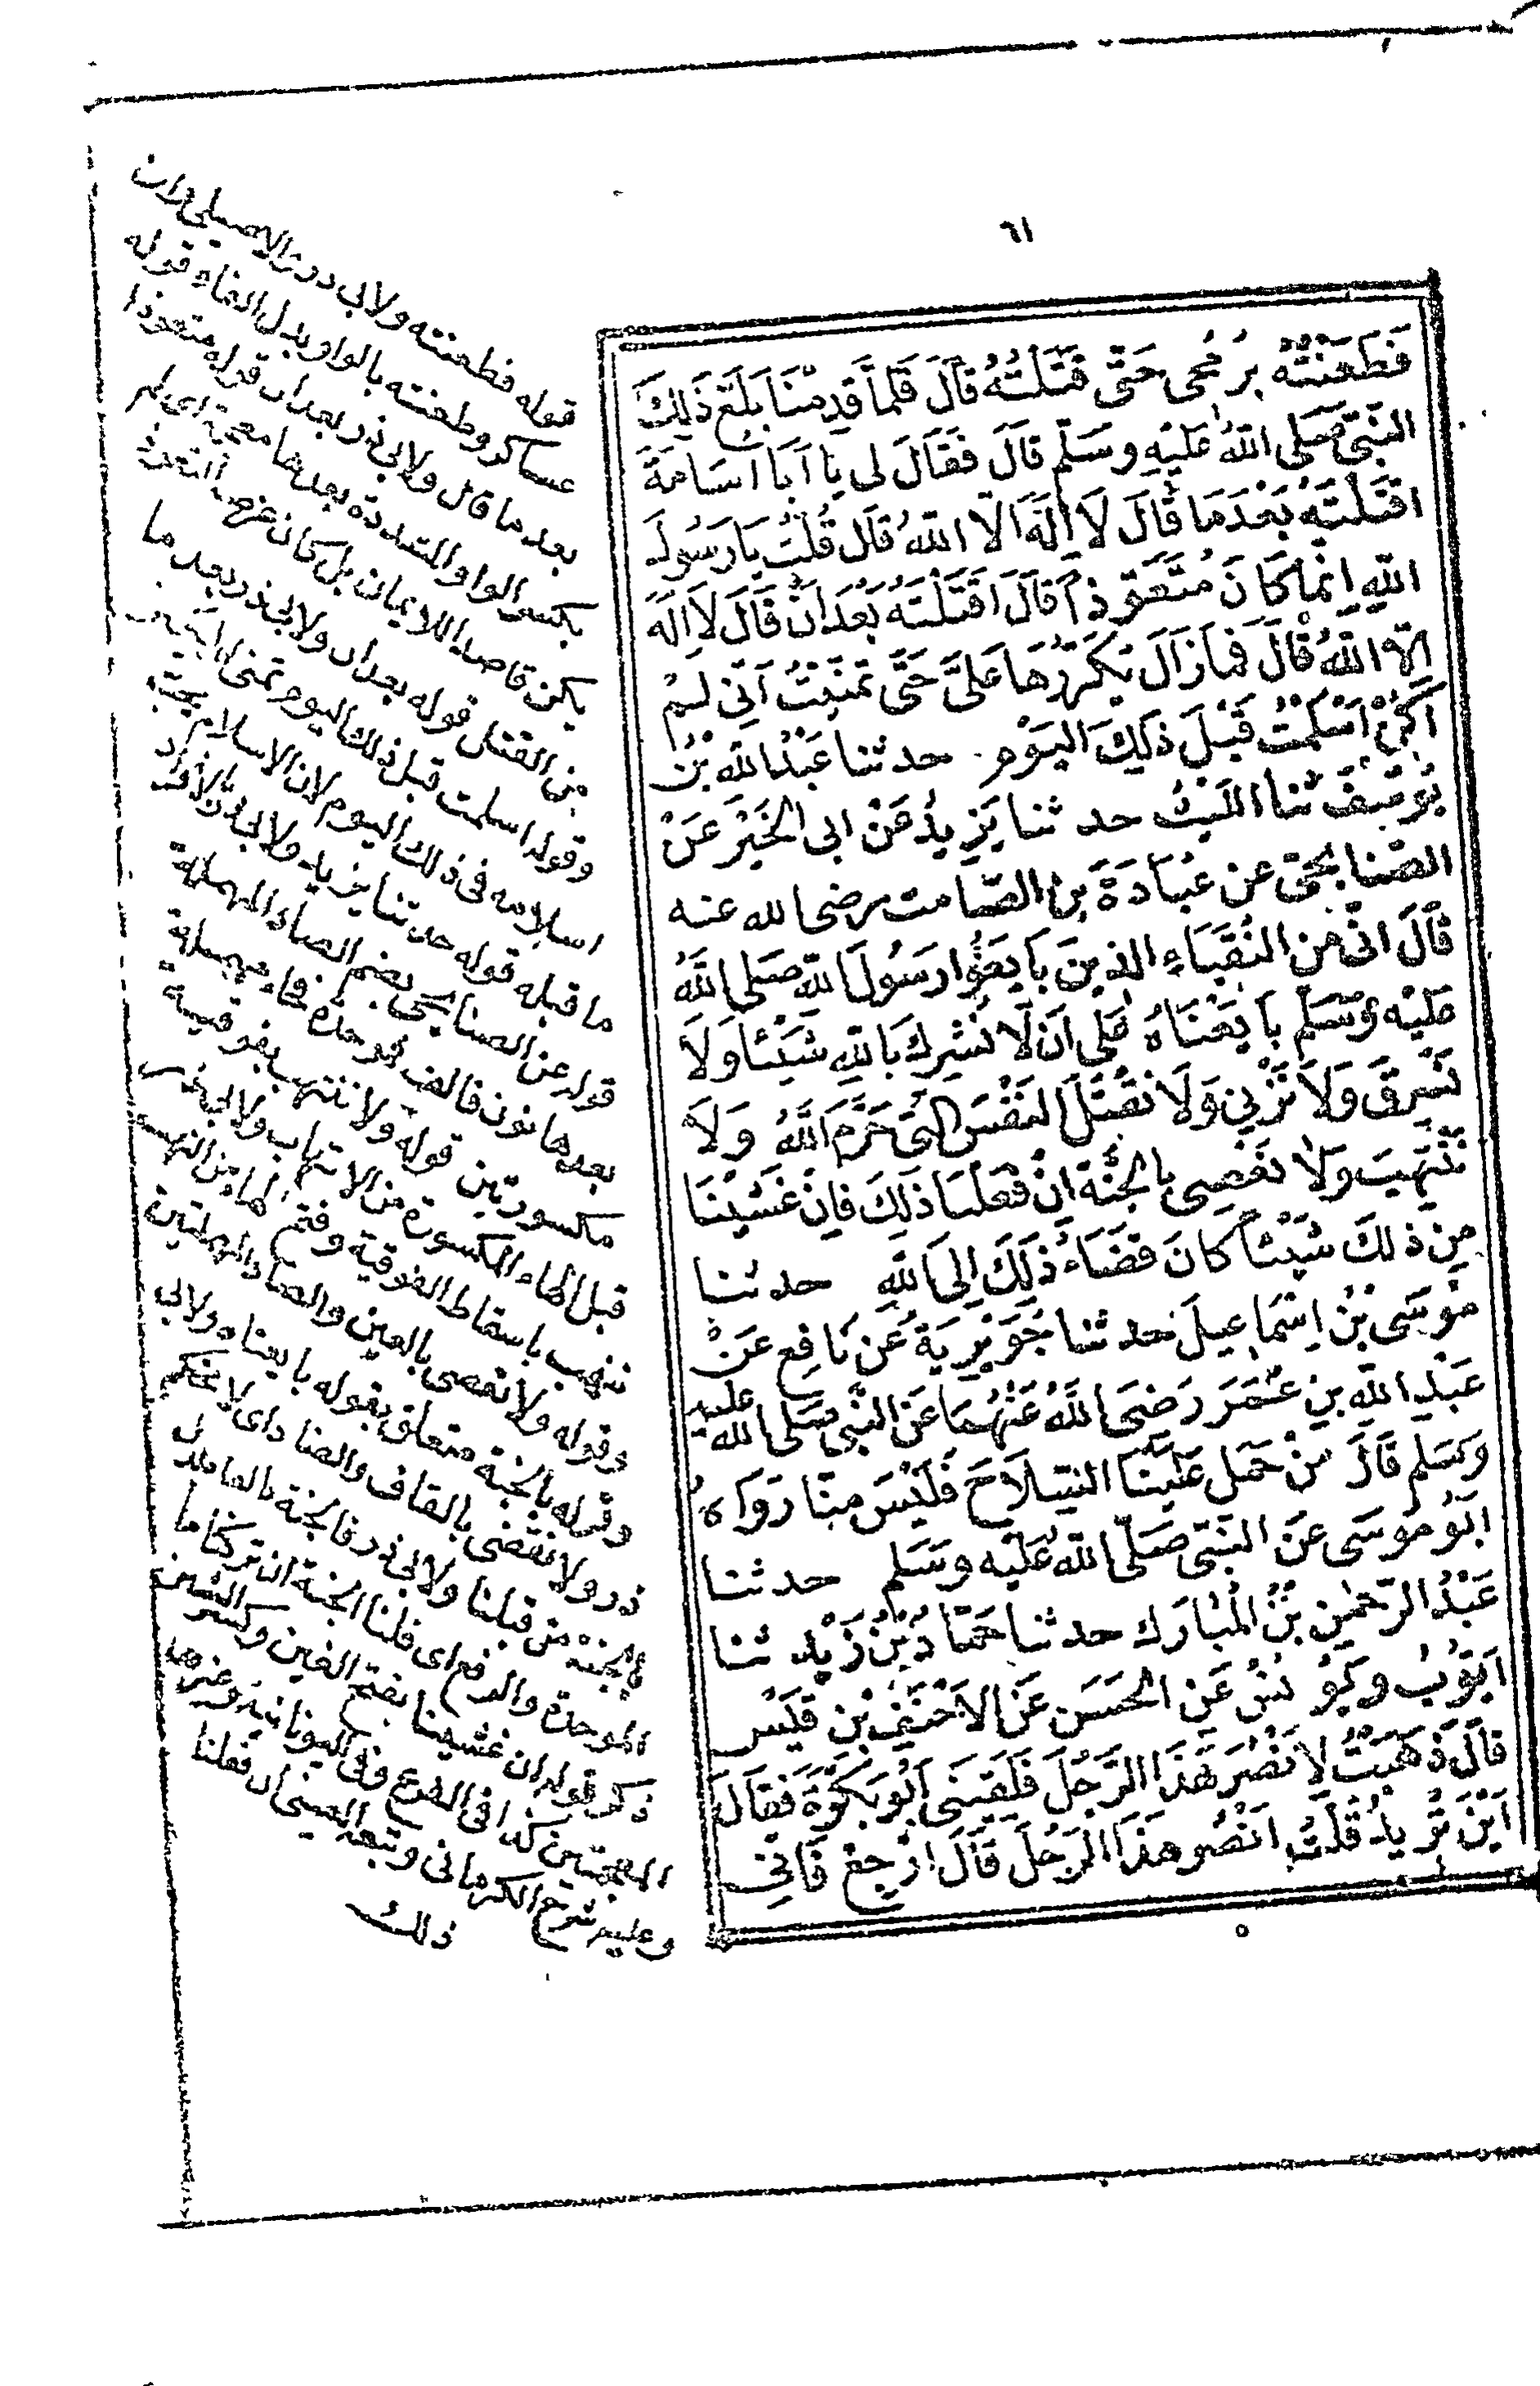 ٦١
فَطَعَنْتُهُ بِرُمْحِى حَتَّى قَتَلْتُهُ قَالَ فَلَمَّا قَدِمْنَا بَلَغَ ذَلِكَ
النَّبِىَّ صَلَّى اللهُ عَلَيْهِ وسَلَّمَ قَالَ فَقَالَ لى يا اَبَا اُسَامَةَ
اَقَتَلْتَهُ بَعْدَمَا قَالَ لَا اِلَهَ اِلَّا اللهُ قَالَ قُلْتُ يَارَسُولَ
اللهِ اِنَّمَا كَانَ مُتَعَوِّذاً قَالَ اَقَتَلْتَهُ بَعْدَ اَنْ قَالَ لَا اِلَهَ
اِلَّا اللهُ قَالَ فَمَا زَالَ يُكَرِّرُهَا عَلَىَّ حَتَّى تَمَنَّيْتُ اَنِّى لَمْ
اَكُنْ اَسْلَمْتُ قَبْلَ ذَلِكَ اليَوْمِ حدثنا عَبْدُ اللهِ بْنُ
يُوسُفَ ثنا اللَّيْثُ حدثنا يَزِيدُ عَنْ ابى الخَيْرِ عَنْ
الصُّنابحىّ عن عُبَادَةَ بنْ الصَّامت رضى الله عنه
قَالَ انّى مِنَ النُّقَبَاءِ الذينَ بَايَعُوا رَسُولَ اللهِ صَلَى اللَّهُ
عَلَيْه وَسَلَّم بَايَعْنَاهُ عَلى اَن لَّا نُشْرِكَ بِاللهِ شَيْئًا وَلَا
نَسْرِقَ وَلَا نَزْنِي وَلَا نَقْتُلَ النَفْسَ الَّتِى حَرَّمَ اللَّهُ وَلَا
نَنْتَهِبَ وَلَا نَعْصِى بالجَنَّة اِنْ فَعَلْنَا ذَلِكَ فَاِنْ غَشِيْنَا
مِنْ ذلكَ شَيْئاً كَانَ قَضَاءُ ذَلِكَ اِلَى اللهِ حدثنا
مُوسَى بْنُ اِسْمَاعِيلَ حدثنا جُوَيْرِيَةُ عَنْ نَافِعٍ عَنْ
عَبْدِ اللهِ بنِ عُمَرَ رَضِىَ اللَّهُ عَنْهُمَا عَنِ النَّبِى صَلى الله عليه
وَسَلم قَالَ مَنْ حَمَلَ عَلَيْنَا السِّلَاحَ فَلَيْسَ مِنَّا رَوَاهُ
اَبُو مُوسَى عَنِ النَّبِّى صَلّى اللهُ عَلَيْه وسَلم حدثنا
عَبْدُ الرَّحْمٰنِ بْنُ المُبَارَك حدثنا حَمَّادُ بْنُ زَيْد ثنا
اَيُّوبُ وَيُونُسُ عَنِ الحَسَنِ عَنِ الاَحْنَفِ بْن قَيْس
قَالَ ذَهَبْتُ لِاَنْصُرَ هَذَا الرَّجُلَ فَلَقِيَنى اَبُو بَكْرَةَ فَقَالَ
اَيْنَ تُرِيدُ قُلْتُ اَنْصُر هذَا الرَّجُلَ قَالَ ارْجِعْ فَاِنِّى
قوله فطعنته ولابى ذر والاصيلى وابن
عساكر وطعنته بالواو بدل الفاء قوله
بعد ما قال ولابى ذر بعد ان قوله متعوذا
بكسر الواو المشددة بعدها معجمة اى لم
يكن قاصدا للايمان بل كان غرضه التعوذ
من القتل قوله بعد ان ولابى ذر بعد ما
وقوله اسلمت قبل ذلك اليوم تمنى ان يكون
اسلامه فى ذلك اليوم لان الاسلام يجبّ
ما قبله قوله حدثنا يزيد ولابى ذر بالافراد
قوله عن الصنابحى بضم الصاد المهملة
بعدها نون فالف فموحدة فحاء مهملة
مكسورتين قوله ولا ننتهب بفوقية
قبل الهاء المكسورة من الانتهاب ولابى ذر
ننهب باسقاط الفوقية وفتح الهاء من النهب
وقوله ولا نعصى بالعين والصاد المهملتين
وقوله بالجنة متعلق بقوله بايعناه ولابى
ذر ولا نقضى بالقاف والضاد اى لا نحكم
بالجنة من قبلنا ولابى ذر فالجنة بالفاء بدل
الموحدة والرفع اى فلنا الجنة ان تركنا ما
ذكر قوله ان غشينا بفتح الغين وكسر الشين
المعجمتين كذا فى الفرع وفى اليونانية وغيرها
وعليه شرح الكرمانى وتبعه العينى ان فعلنا
ذلك